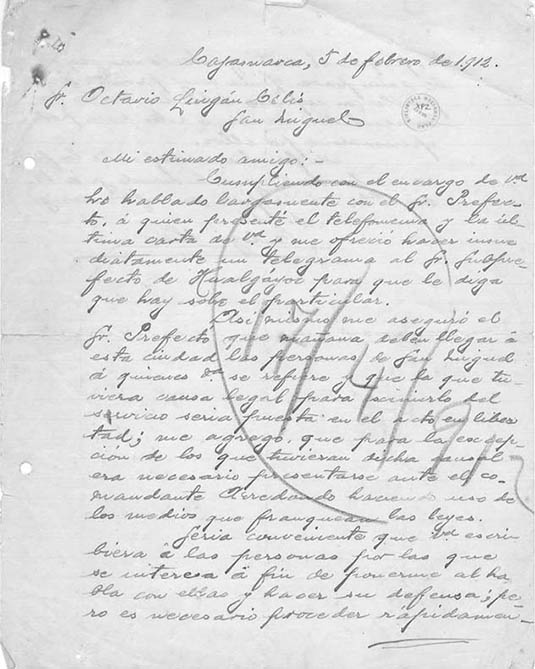 Cajamarca, 5 de febrero de 1912.
Sr. Octavio Lingán Célis
San Miguel
Mi estimado amigo:-
Cumpliendo con el encargo de Vd
he hablado largamente con el Sr. Prefec-
to, á quien presenté el telefonema y la úl-
tima carta de Vd. y me ofreció hacer inme
diatamente un telegrama al Sr. Subpre-
fecto de Hualgáyoc para que le diga
que hay sobre el particular.
Asi mismo me aseguró el
Sr. Prefecto que mañana deben llegar á
esta ciudad las personas de San Miguel
á quienes Vd. se refiere y que la que tu-
viera causa legal para eximirlo del
servicio seria puesta en el acto en liber
tad; me agregó, que para la excep-
ción de los que tuvieran dicha causal
era necesario presentarse ante el co-
mandante Arredondo haciendo uso de
los medios que franquean las leyes.
Seria conveniente que Vd escri-
biera á las personas por las que
se interesa á fin de ponerme al ha-
bla con ellas y hacer su defensa; pe-
ro es necesario proceder rápidamen-
17/4/12